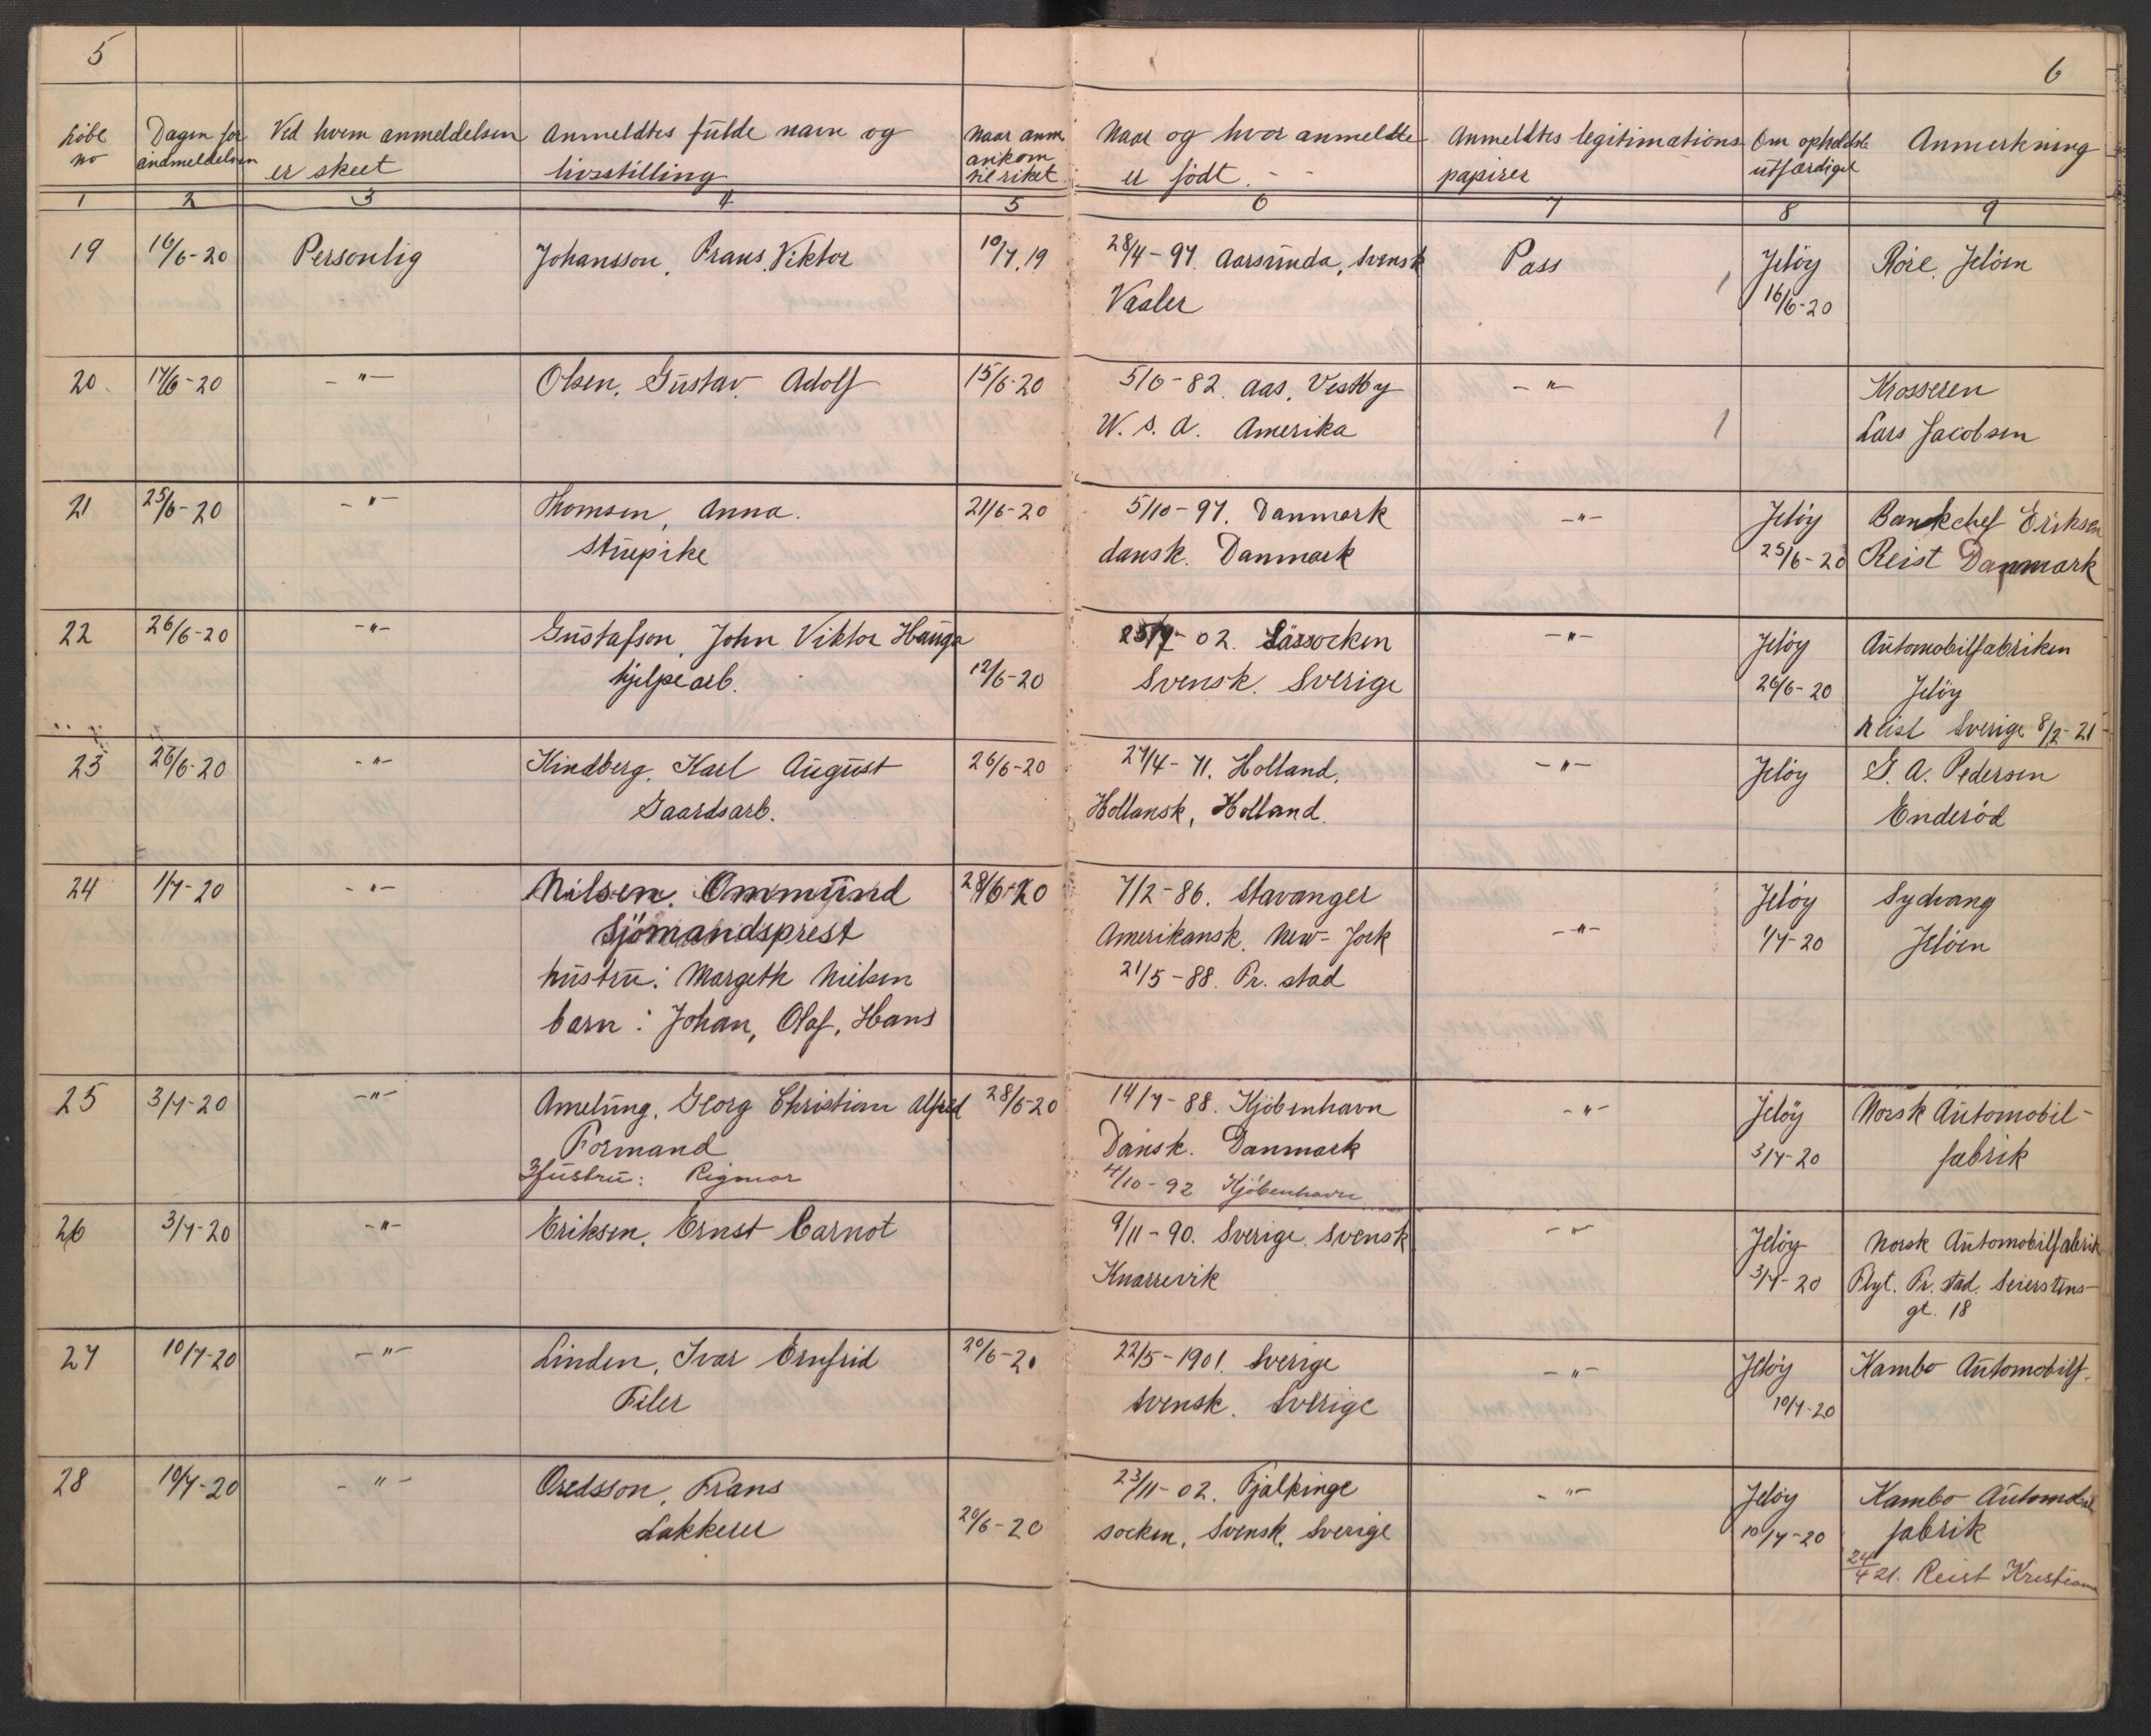 5
6
Løbe no
Dagen for andmeldelsen
Ved hvem anmeddelsen er skeet
Anmeldtes fulde navn og livsstilling
Naar anm ankom til riket
Naar og hvor anmeldte er født. - -
Anmeldtes legitimations papirer
Om opholdsb utfærdiget
Anmerkning
1 2 3 4 5 6 7 8 9
19 16/6-20 Personlig Johansson, Frans Viktor 10/7.19 28/4-97 Aarsunda, Svensk Pass Jeløy Røre, Jeløen
Vaaler 16/6-20
20 17/6-20 -"- Olsen, Gustav Adolf 15/6-20 5/6-82. Aas, Vestby -"- Krosseren
U. S. A. Amerika Lars Jacobsen
21 25/6-20 -"- Thomsen, Anna. 21/6-20 5/10-97. Danmark -"- Jeløy Bankchef Eriksen
stuepike dansk. Danmark 25/6-20 Reist Danmark
22 26/6-20 -"- Gustafson, John Viktor Hauga 25/7-02. -"- Jeløy Automobilfabriken
hjelpearb. 12/6-20 Svensk. Sverige 26/6-20 Jeløy
Reist Sverige 8/2-21
23 26/6-20 -"- Kindberg, Karl August 26/6-20 27/4-71. Holland. -"- Jeløy G. A. Pedersen
Gaardsarb. Hollansk, Holland. Enderød
24 1/7-20 -"- Nilsen, Ommund 28/6-20 7/2-86. Stavanger Jeløy Sydvang
Sjömandsprest Amerikansk. New-Jork -"- 1/7-20 Jeløen
hustru: Margeth Nielsen 21/5-88. Fr. stad
barn: Johan, Olaf, Hans
25 3/7-20 -"- Amelung, Georg Christian Alfred 28/6-20 14/7-88. Kjöbenhavn -"- Jeløy Norsk Automobil-
Formand Dansk. Danmark 3/7-20 fabrik
Hustru: Rigmor 4/10-92 Kjöbenhavn
26 3/7-20 -"- Eriksen, Ernst Carnot 9/11-90. Sverige. Svensk -"- Jeløy Norsk Automobilfabrik
Knarrevik 3/7-20 Flyt. Fr. stad. Seierstens-
gt. 18
27 10/7-20 -"- Linden, Ivar Ernfrid 20/6-20 22/5-1901. Sverige -"- Jeløy Kambo Automobilf.
Filer Svensk. Sverige 10/7-20
28 10/7-20 -"- Oredsson, Frans 23/11-02. Fjalkinge -"- Jeløy Kambo Automobil
Lakkerer 20/6-20 socken, Svensk. Sverige 10/7-20 fabrik
24/4 21. Reist Kristiania